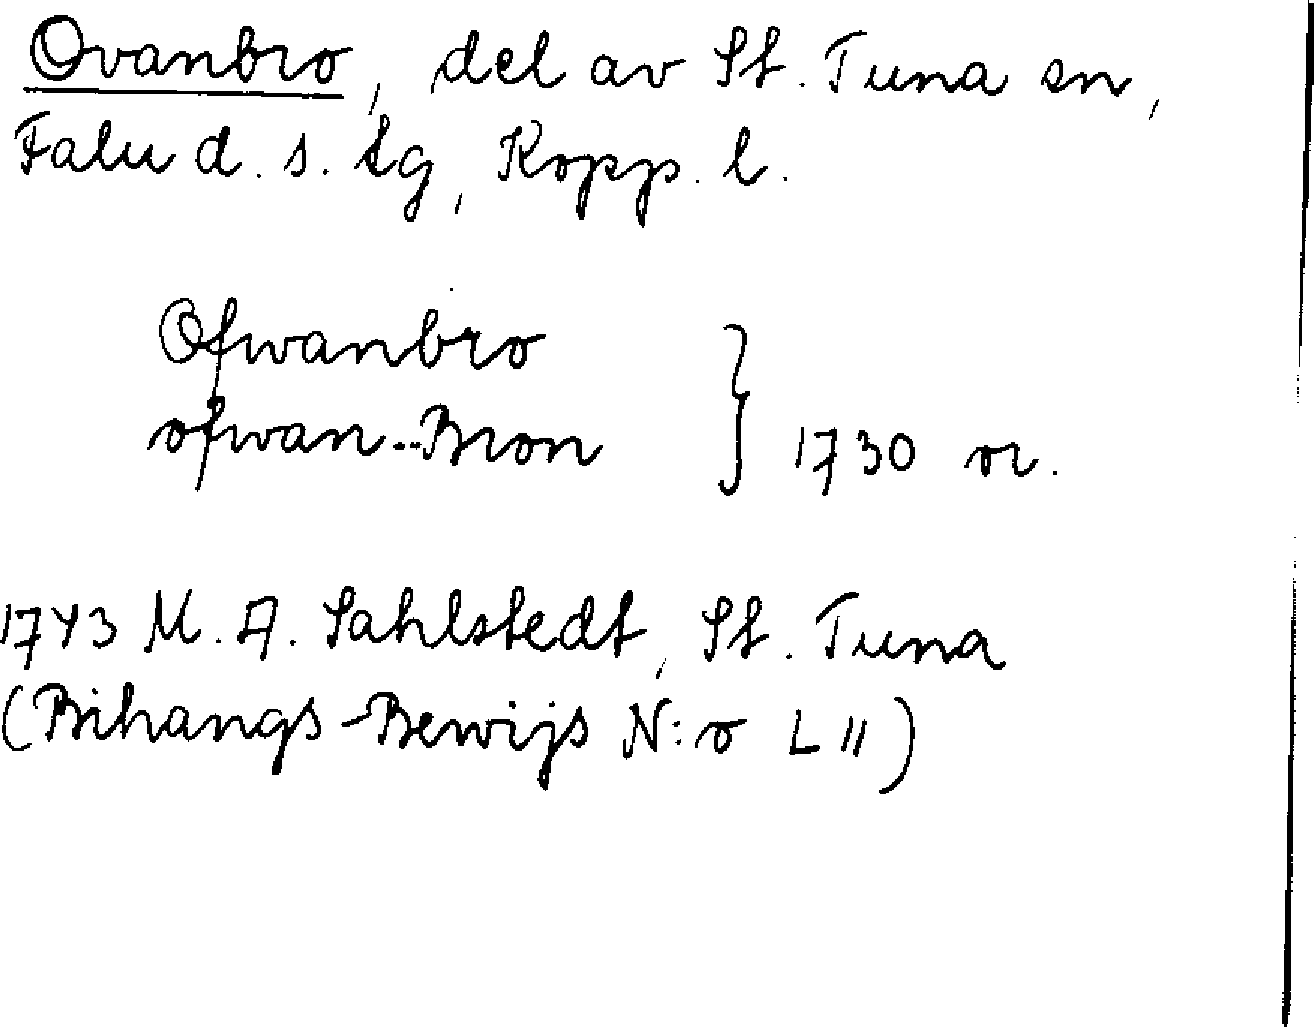 Ovanbro, del av St. Tuna sn,
Falu d. s. tg, Kopp. l.
Ofwanbro
ofwan-Bron } 1730 or.
1743 M. A. Sahlstedt, St. Tuna
(Bihangs-Bewijs N:o LII)